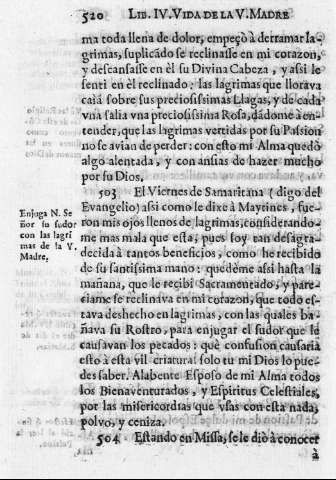 520 LIB. IV. VIDA DE LA V. MADRE
ma toda llena de dolor, empeçò à derramar la-
grimas, suplicado se reclinasse en mi corazon,
y descansasse en èl su Divina Cabeza, y assi le
senti en èl reclinado: las lagrimas que llorava
caiá sobre sus preciosissimas Llagas, y de cada
vna salia vna preciosissima Rosa, dádome à en-
tender, que las lagrimas vertidas por su Passion
no se avian de perder: con esto mi Alma quedò
algo alentada, y con ansias de hazer mucho
por su Dios.
503. El Viernes de Samaritana (digo del
Evangelio) assi como le dixe à Maytines, fue-
ron mis ojos llenos de lagrimas, considerando-
me mas mala que esta, pues soy tan desagra-
decida à tantos beneficios, como he recibido
de su santissima mano: quedème assi hasta la
mañana, que le recibì Sacramenedo, y pare-
ciame se reclinava en mi corazon, que todo es-
tava deshecho en lagrimas, con las quales ba-
ñava su Rostro, para enjugar el sudor que le
causavan los pecados: què confusion causaria
esto à esta vil criatura! solo tu mi Dios lo pue-
des saber. Alabente Esposo de mi Alma todos
los Bienaventurados, y Espiritus Celestiales,
por las misericordias que vsas con esta nada,
polvo, y ceniza.
504. Estando en Missa, se le diò à conocer
à
Enjuga N. Se
ñor su sudor
con las lagri
mas de la V.
Madre.